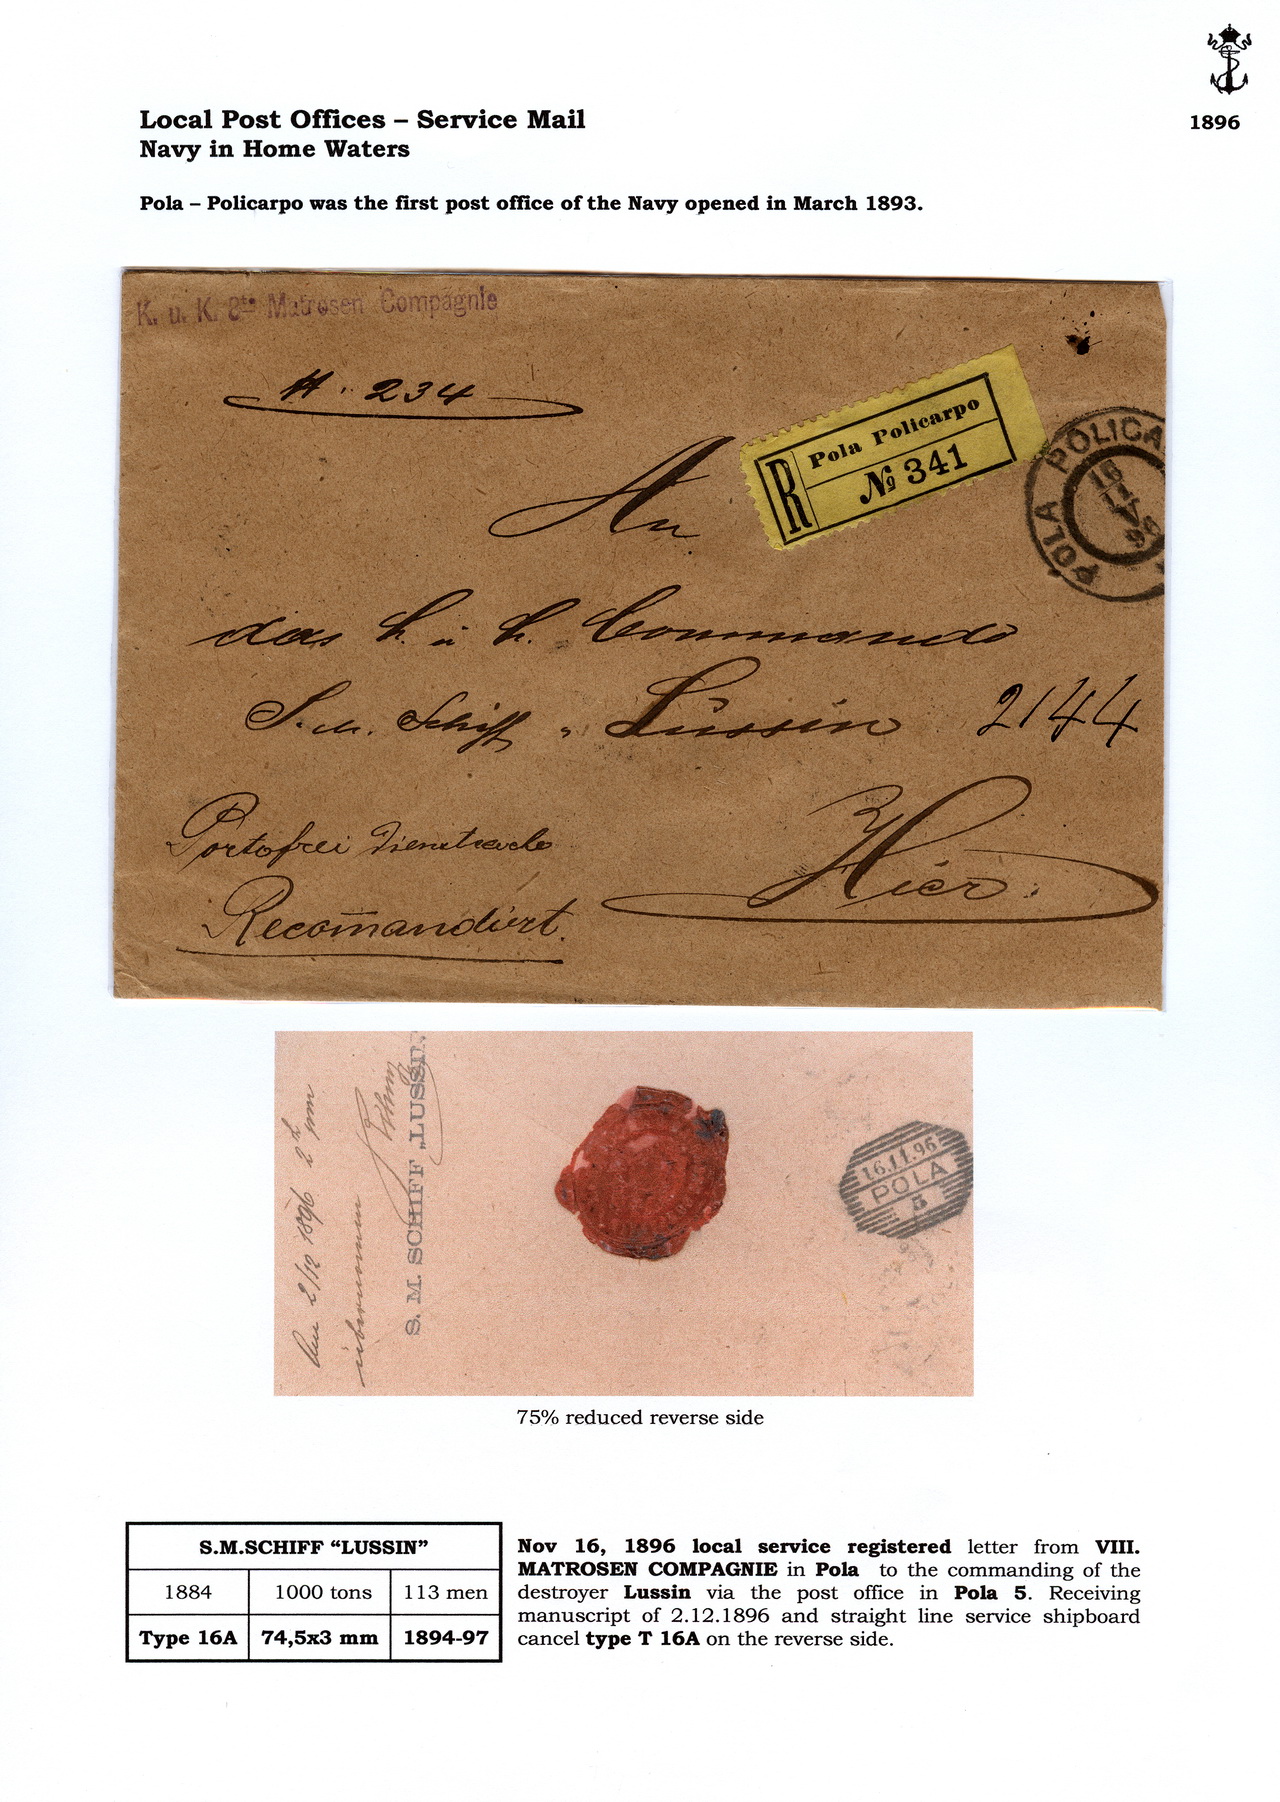 1896
Local Post Offices – Service Mail
Navy in Home Waters
Pola – Policarpo was the first post office of the Navy opened in March 1893.
K. u. K. 8te Matrosen Compagnie
N. 234
Pola Policarpo
R № 341
POLA POLICA
16
11
V
96
An
das k. u. k. Commando
S. M. Schiff „Lussin 2144
Hier.
Portofrei Dienstsache
Recomandirt.
Am 2/12 1896 2h
übernommen
S. M. SCHIFF „LUSSIN
16.11.96
POLA
5
75% reduced reverse side
S.M.SCHIFF “LUSSIN”
1884 1000 tons 113 men
Type 16A 74,5x3 mm 1894-97
Nov 16, 1896 local service registered letter from VIII.
MATROSEN COMPAGNIE in Pola to the commanding of the
destroyer Lussin via the post office in Pola 5. Receiving
manuscript of 2.12.1896 and straight line service shipboard
cancel type T 16A on the reverse side.